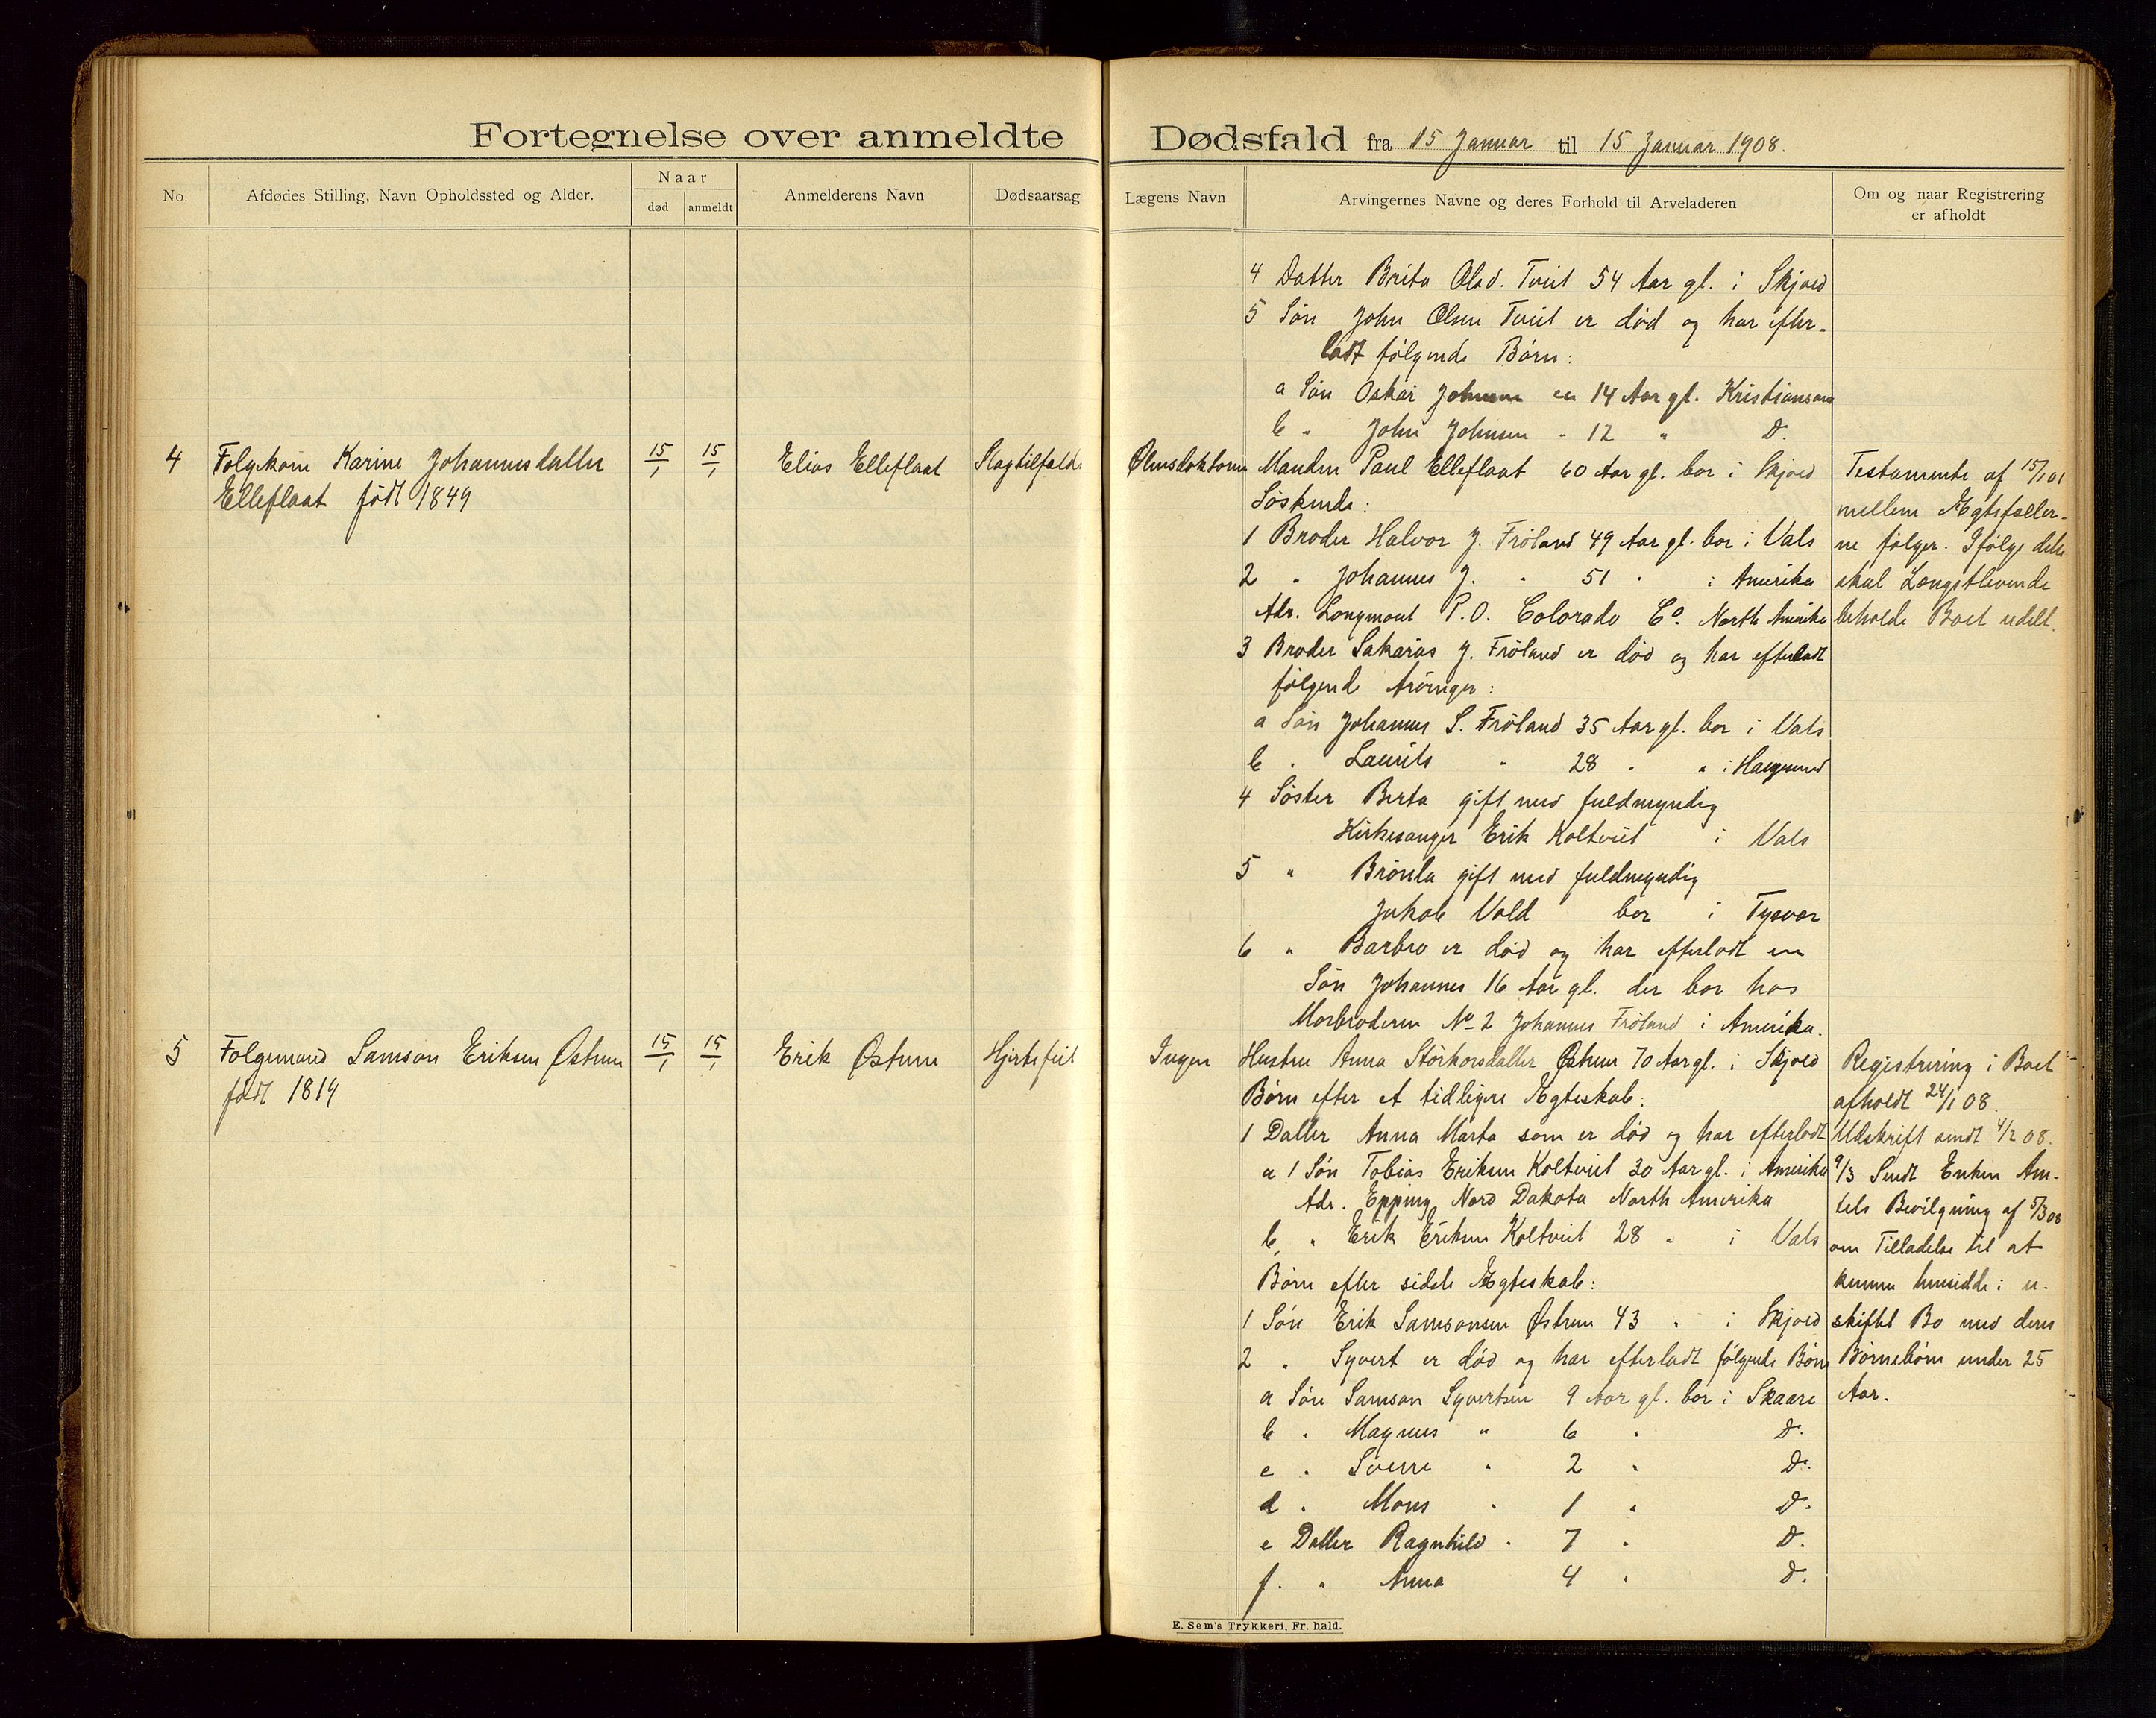 Fortegnelse over anmeldte Dødsfald fra 15 Januar til 15 Januar 1908.
No.
Afdødes Stilling, Navn Opholdssted og Alder.
Naar
død
anmeldt
Anmelderens Navn
Dødsaarsag
Lægens Navn
Arvingernes Navne og deres Forhold til Arveladeren
Om og naar Registrering
er afholdt
4 Datter Brita Olsd. Tveit 54 Aar gl. i Skjold
5 Søn John Olsen Tveit er død og har efter-
ladt følgende Børn:
a Søn Oskar Johnsen er 14 Aar gl. Kristiansand
b " John Johnsen - 12 " Do.
4
Folgekone Karine Johannesdatter
Elleflaat født 1849
15/1
15/1
Elias Elleflaat
Slagtilfælde
Manden Paul Elleflaat 60 Aar gl. bor i Skjold
Søskende:
1 Broder Halvor J. Frøland 49 Aar gl. bor i Vats
2 " Johannes J. " 51 " i Amerika
Adr. Longmont P.O. Colorado Co. North Amerika
3 Broder Sakarias J. Frøland er død og har efterladt
følgend Arvinger:
a Søn Johannes S. Frøland 35 Aar gl. bor i Vats
b " Laurits " 28 " " i Haugesund
4 Søster Berta gift med fuldmyndig
Kirkesanger Erik Koltveit i Vats
5 " Brønla gift med fuldmyndig
Jakob Vold bor i Tysvær
6 " Barbro er død og har efterladt en
Søn Johannes 16 Aar gl. der bor hos
Morbroderen No 2 Johannes Frøland i Amerika.
Testamente af 15/1 01
mellem Ægtefæller-
ne følger. Ifølge dette
skal Længstlevende
beholde Boet udelt.
5
Folgemand Samson Eriksen Østrem
født 1819
15/1
15/1
Erik Østrem
Hjertefeil
Ingen
Hustru Anna Størkorsdatter Østrem 70 Aar gl. i Skjold
Børn efter et tidligere Ægteskab:
1 Datter Anna Marta som er død og har efterladt
a 1 Søn Tobias Eriksen Koltveit 30 Aar gl. i Amerika
Adr. Epping Nord Dakota North Amerika
b " Erik Eriksen Koltveit 28 " i Vats
Børn efter sidste Ægteskab:
1 Søn Erik Samsonsen Østrem 43 " i Skjold
2 " Syvert er død og har efterladt følgende Børn
a Søn Samson Syvertsen 9 Aar gl. bor i Skaare
b " Magnus " 6 " Do.
c " Sverre " 2 " Do.
d " Mons " 1 " Do.
e Datter Ragnhild " 7 " Do.
f. " Anna 4 " Do.
Registrering i Boet
afholdt 24/1 08.
Udskrift sendt 4/2 08.
9/3 Sendt Enken Am-
tets Bevilgning af 5/3 08
om Tilladelse til at
kunne hensidde i u-
skiftet Bo med deres
Børnebørn under 25
Aar.
E. Sem's Trykkeri, Fr. hald.